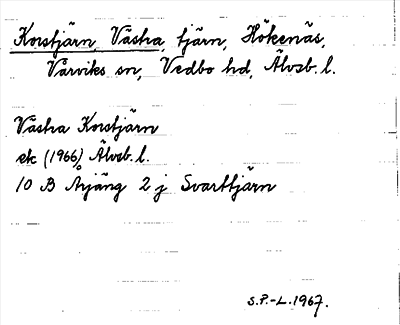 Korstjärn, Västra, tjärn, Hökenäs,
Vårviks sn, Vedbo hd, Älvsb. l.
Västra Korstjärn
ek (1966) Älvsb. l.
10 B Årjäng 2 j Svarttjärn
S.P.-L. 1967.